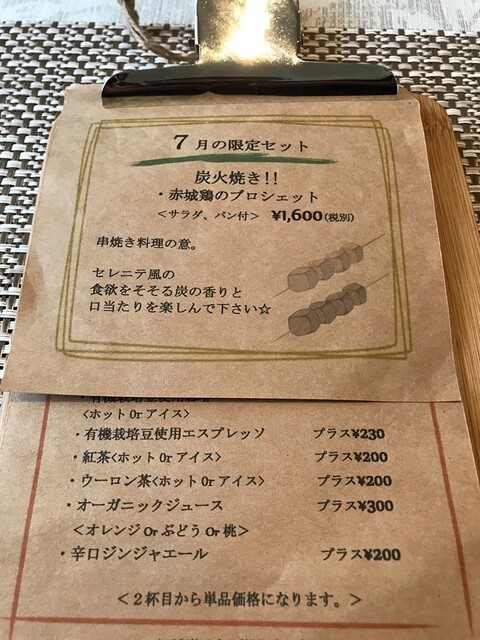 7月の限定セット
炭火焼き!!
・赤城鶏のブロシェット
＜サラダ、パン付＞ ¥1,600(税別)
串焼き料理の意。
セレニテ風の
食欲をそそる炭の香りと
口当たりを楽しんで下さい☆
＜ホット Or アイス＞
・有機栽培豆使用エスプレッソ プラス¥230
・紅茶＜ホット Or アイス＞ プラス¥200
・ウーロン茶＜ホット Or アイス＞ プラス¥200
・オーガニックジュース プラス¥300
＜オレンジ Or ぶどう Or 桃＞
・辛口ジンジャエール プラス¥200
＜２杯目から単品価格になります。＞